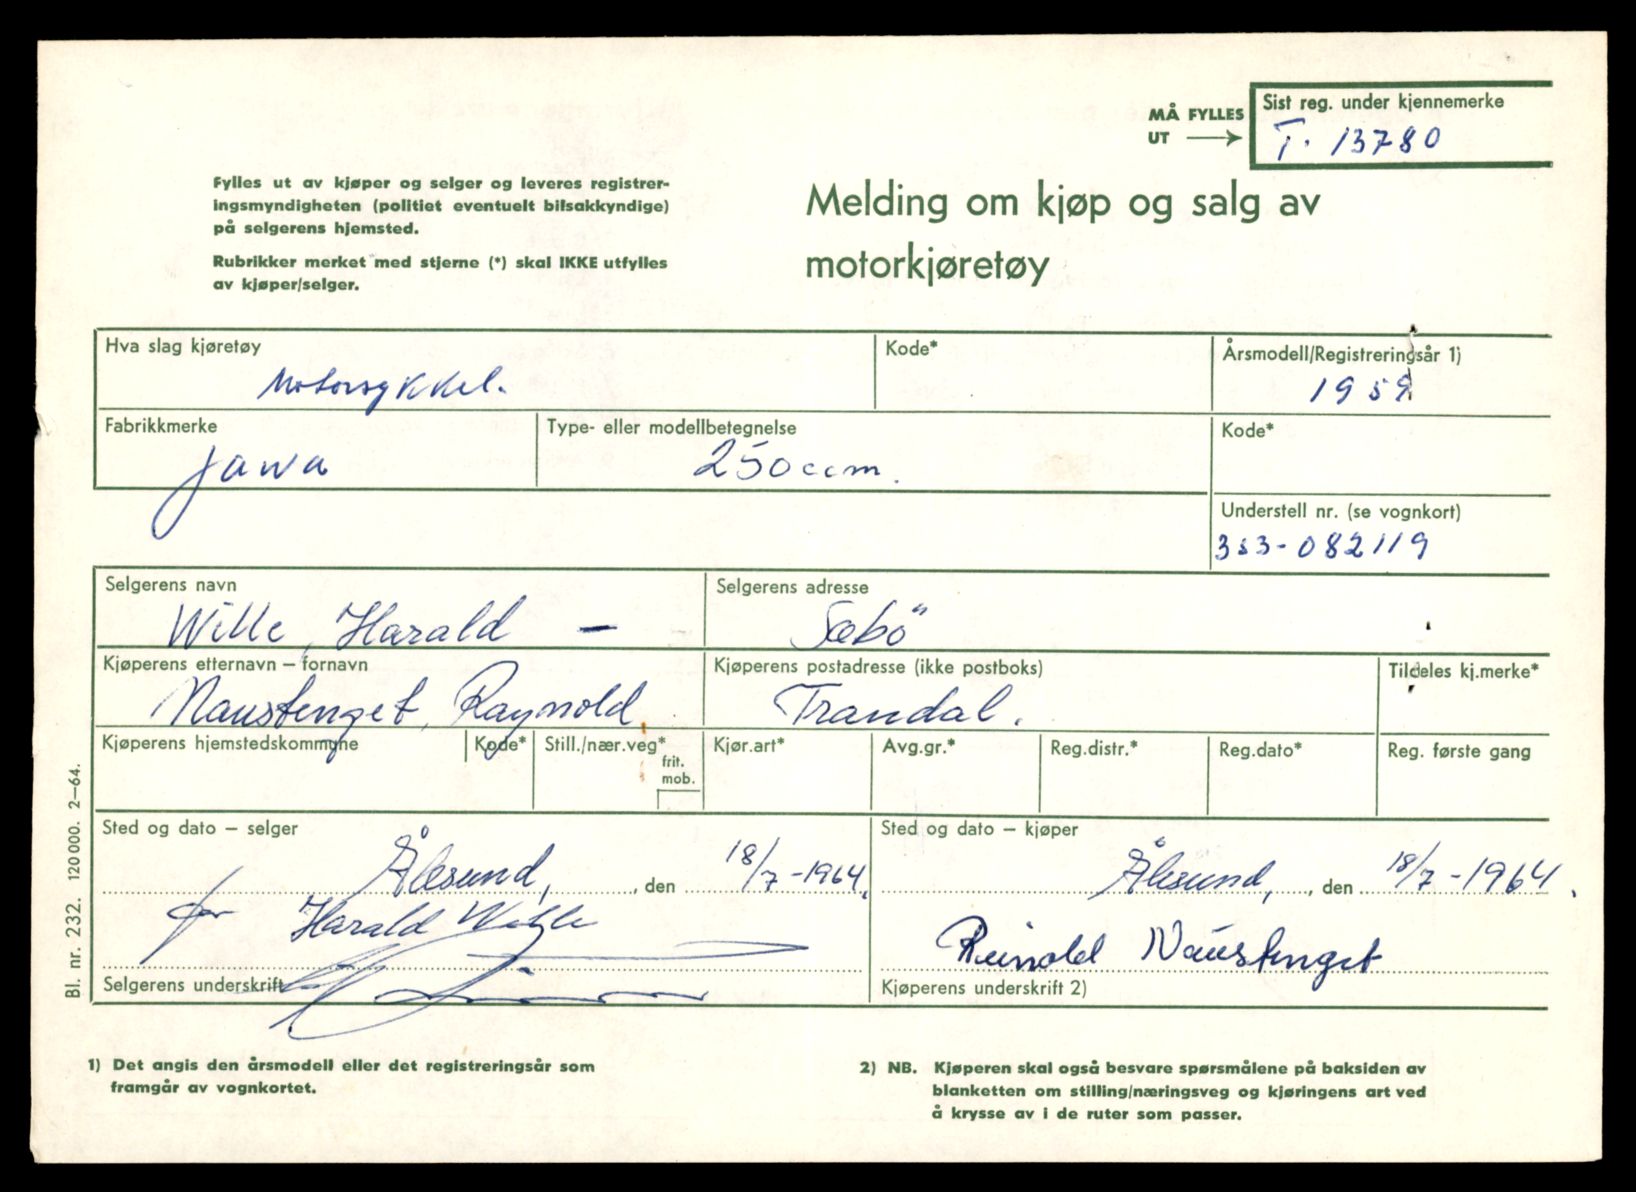 MÅ FYLLES
UT
Sist reg. under kjennemerke
T. 13780
Fylles ut av kjøper og selger og leveres registrer-
ingsmyndigheten (politiet eventuelt bilsakkyndige)
på selgerens hjemsted.
Rubrikker merket med stjerne (*) skal IKKE utfylles
av kjøper/selger.
Melding om kjøp og salg av
motorkjøretøy
Hva slag kjøretøy
Motorsykkel.
Kode*
Årsmodell/Registreringsår 1)
1959
Fabrikkmerke
Jawa
Type- eller modellbetegnelse
250 ccm.
Kode*
Understell nr. (se vognkort)
353-082119
Selgerens navn
Wille, Harald —
Selgerens adresse
Sæbö
Kjøperens etternavn – fornavn
Naustenget, Raynold
Kjøperens postadresse (ikke postboks)
Trandal.
Tildeles kj.merke*
Kjøperens hjemstedskommune
Kode*
Still./nær.veg*
frit.
mob.
Kjør.art*
Avg.gr.*
Reg.distr.*
Reg.dato*
Reg. første gang
Sted og dato – selger
Ålesund, , den 18/7-1964.
for Harald Wille
Selgerens underskrift
Sted og dato – kjøper
Ålesund, , den 18/7-1964.
Reinold Naustenget
Kjøperens underskrift 2)
Bl. nr. 232. 120 000. 2–64.
1) Det angis den årsmodell eller det registreringsår som
framgår av vognkortet.
2) NB. Kjøperen skal også besvare spørsmålene på baksiden av
blanketten om stilling/næringsveg og kjøringens art ved
å krysse av i de ruter som passer.